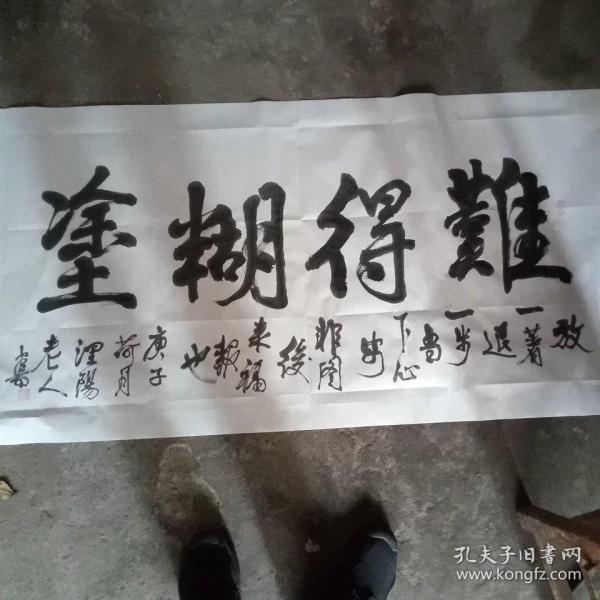 難得糊塗
放
一著
退
一步
当
下心
安
非图
後
来福
報
也
庚子
荷月
陽
老人
孔夫子旧书网
www.kongfz.com